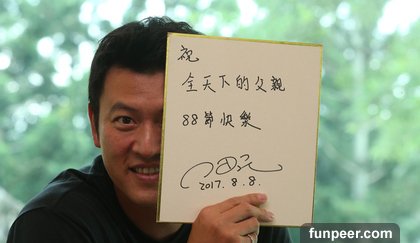 祝
全天下的父親
88節快樂
2017.8.8.
funpeer.com